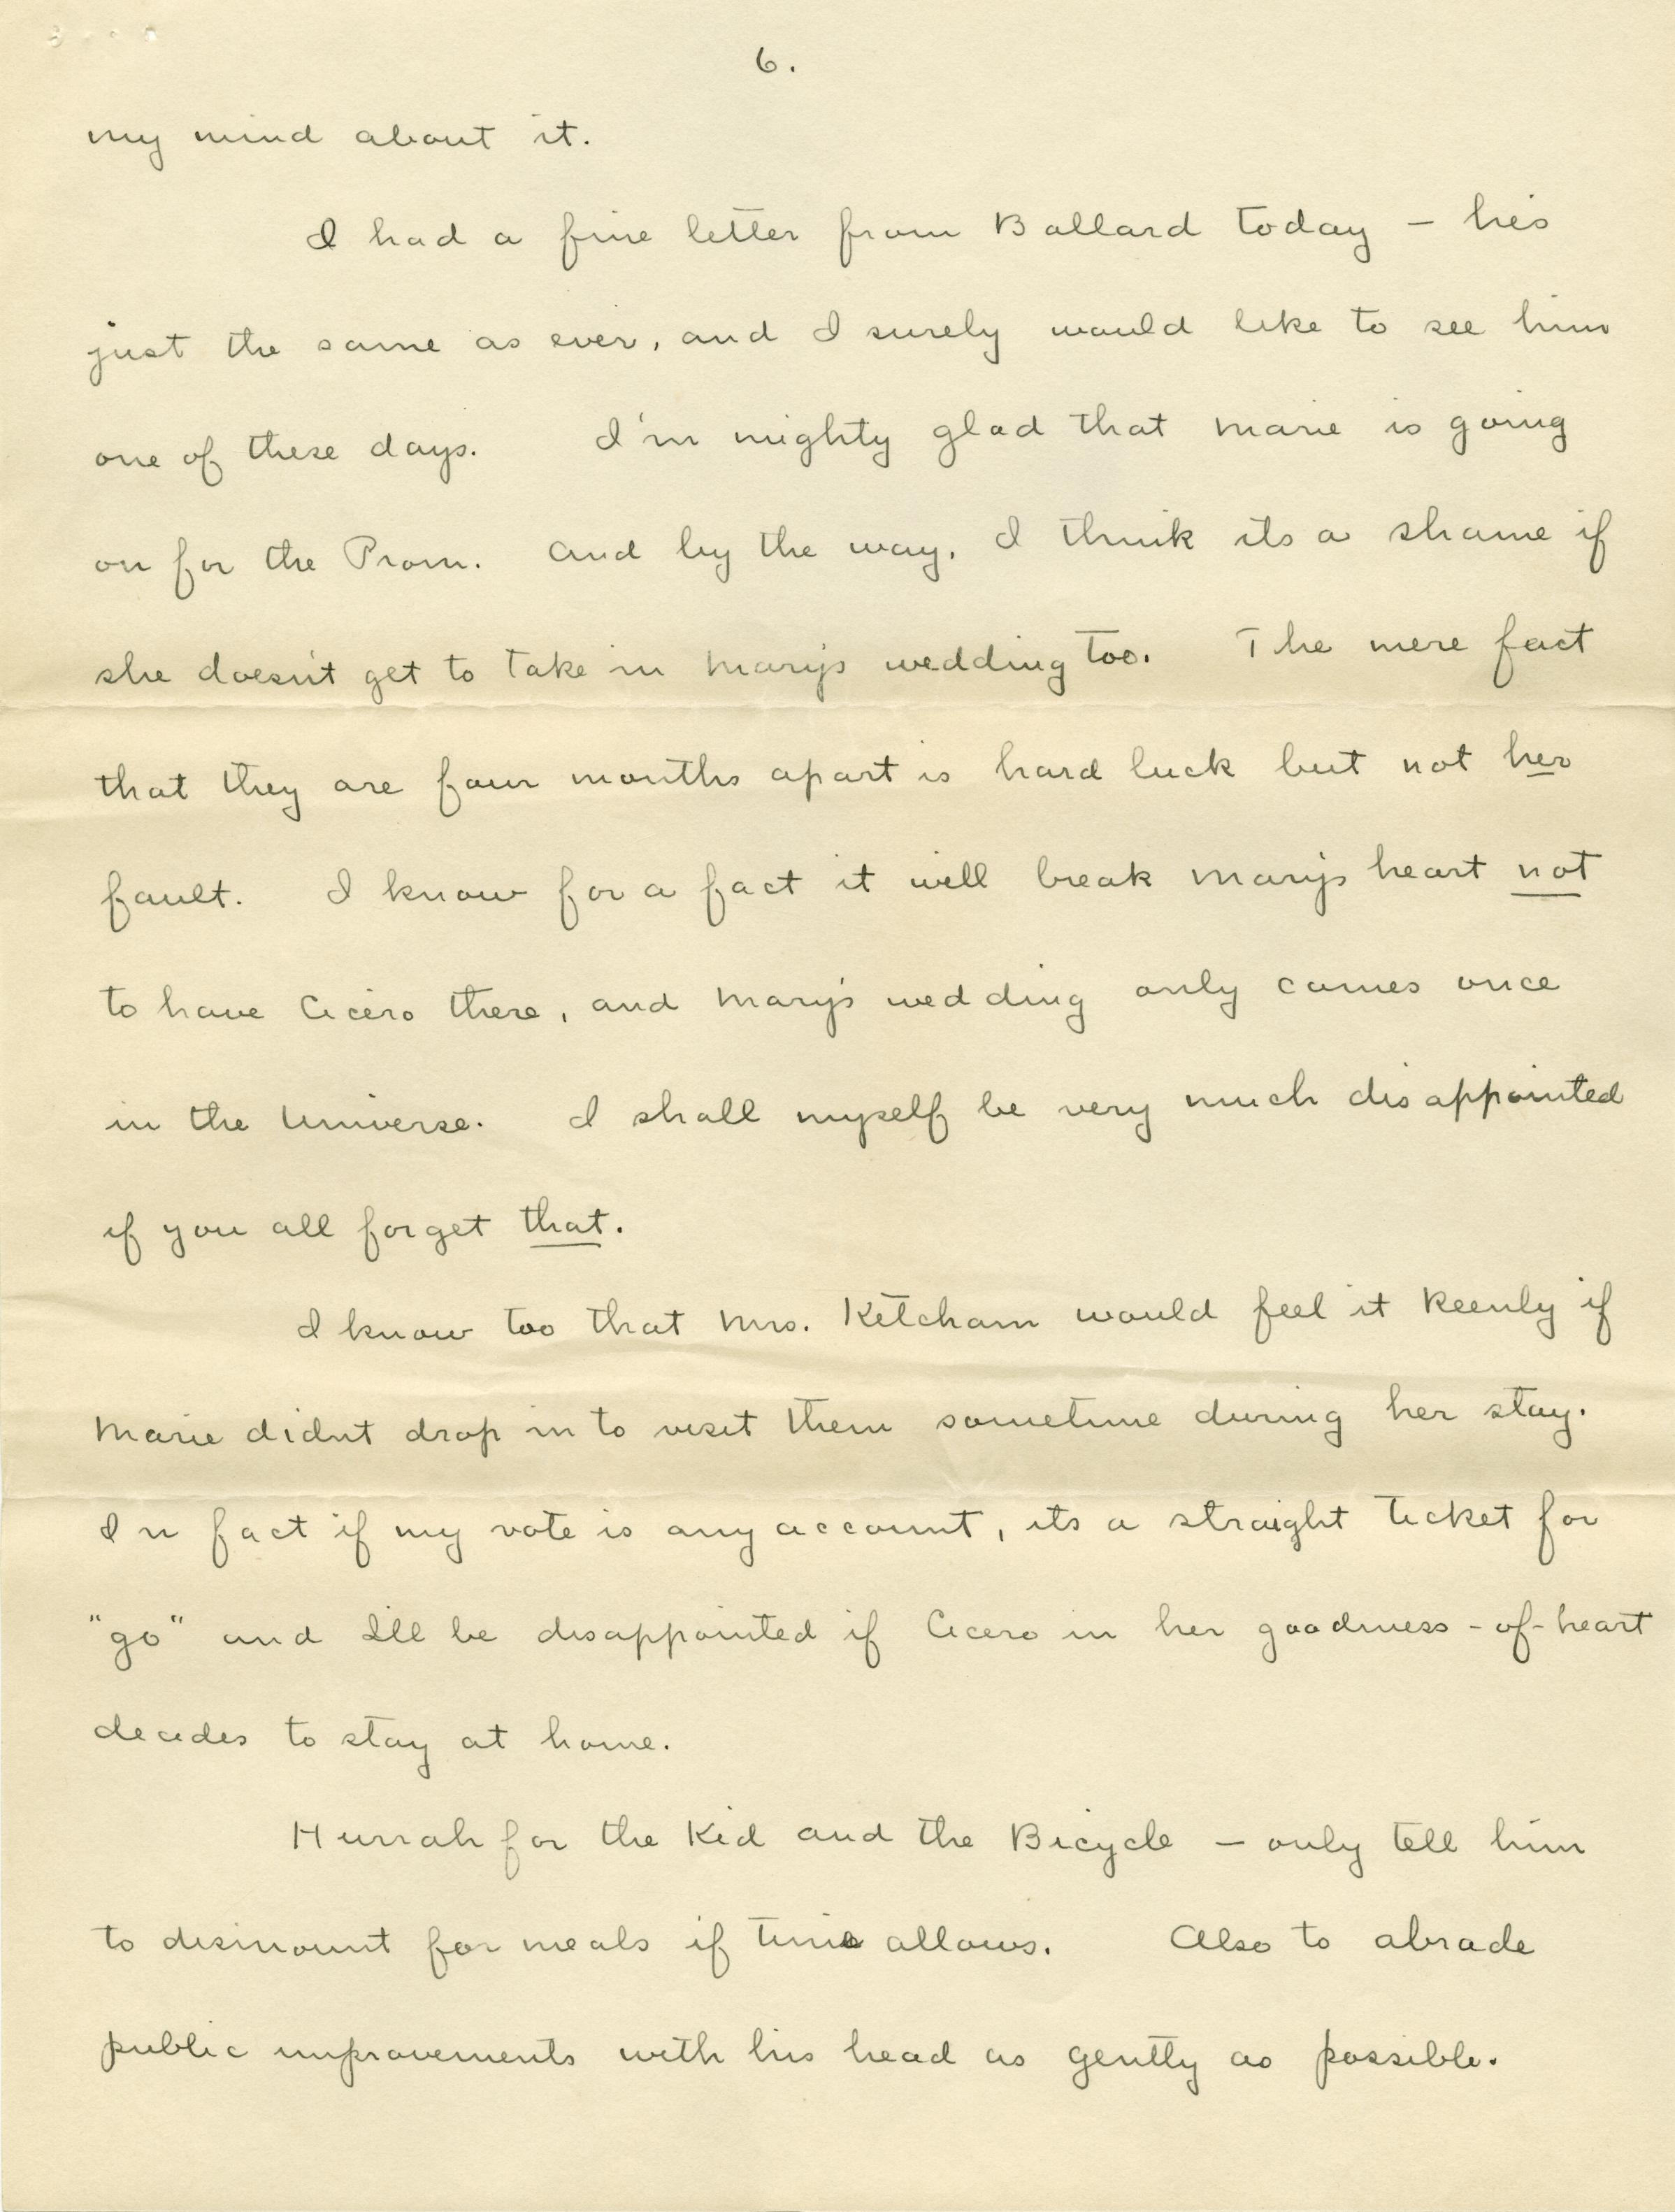 6.
my mind about it.
I had a fine letter from Ballard today – he's
just the same as ever, and I surely would like to see him
one of these days. I'm mighty glad that Marie is going
on for the Prom. And by the way, I think its a shame if
she doesn't get to take in Mary's wedding too. The mere fact
that they are four months apart is hard luck but not her
fault. I know for a fact it will break Mary's heart not
to have Cicero there, and Mary's wedding only comes once
in the Universe. I shall myself be very much disappointed
if you all forget that.
I know too that Mrs. Ketcham would feel it keenly if
Marie didn't drop in to visit them sometime during her stay.
In fact if my vote is any account, its a straight ticket for
"go" and I'll be disappointed if Cicero in her goodness-of-heart
decides to stay at home.
Hurrah for the Kid and the Bicycle – only tell him
to dismount for meals if time allows. Also to abrade
public improvements with his head as gently as possible.